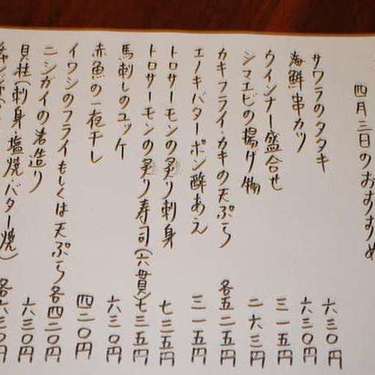 四月三日のおすすめ
サワラのタタキ 六三〇円
海鮮串カツ 三一五円
ウインナー盛合せ 二六三円
シマエビの揚げ物
カキフライ・カキの天ぷら 各五二五円
エノキバターポン酢あえ 三一五円
トロサーモンの炙り刺身 七三五円
トロサーモンの炙り寿司(六貫)七三五円
馬刺しのユッケ 六三〇円
赤魚の一夜干し 四二〇円
イワシのフライもしくは天ぷら各四二〇円
ニシガイの老造り 六三〇円
貝柱(刺身・塩焼・バター焼)各六三〇円